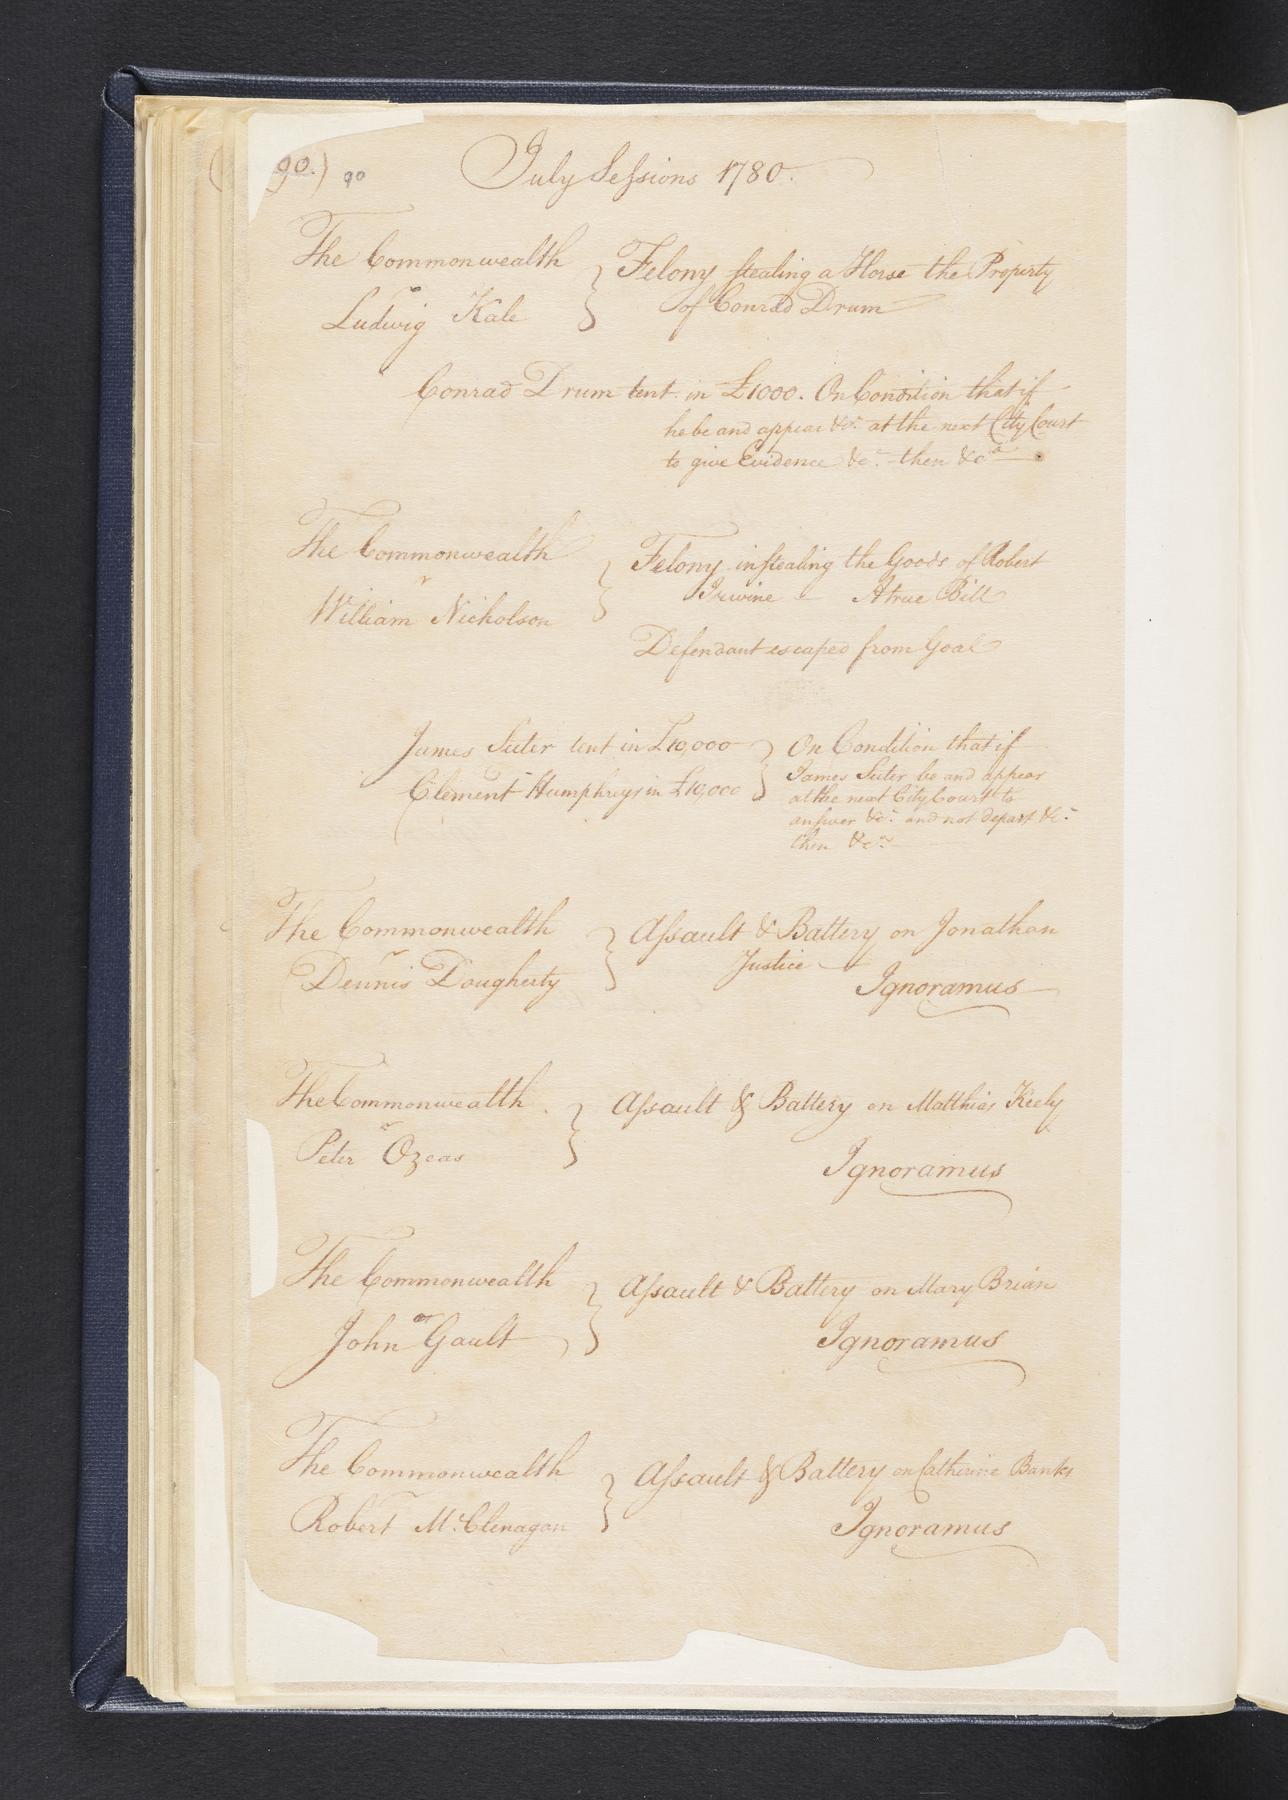 90.) 90 July Sessions 1780.
The Commonwealth
v
Ludwig Kale
Felony stealing a Horse the Property
of Conrad Drum
Conrad Drum tent. in £1000. On Condition that if
he be and appear &c. at the next City Court
to give Evidence &c. then &ca
The Commonwealth
v
William Nicholson
Felony in stealing the Goods of Robert
Irwine - A true Bill
Defendant escaped from Goal
James Suter tent in £10,000
Clement Humphreys in £10,000
On Condition that if
James Suter be and appear
at the next City Court to
answer &c. and not depart &c.
then &c.
The Commonwealth
v
Dennis Dougherty
Assault & Battery on Jonathan
Justice
Ignoramus
The Commonwealth
v
Peter Ozeas
Assault & Battery on Matthias Keely
Ignoramus
The Commonwealth
v
John Gault
Assault & Battery on Mary Brian
Ignoramus
The Commonwealth
v
Robert McClenagan
Assault & Battery on Catherine Banks
Ignoramus